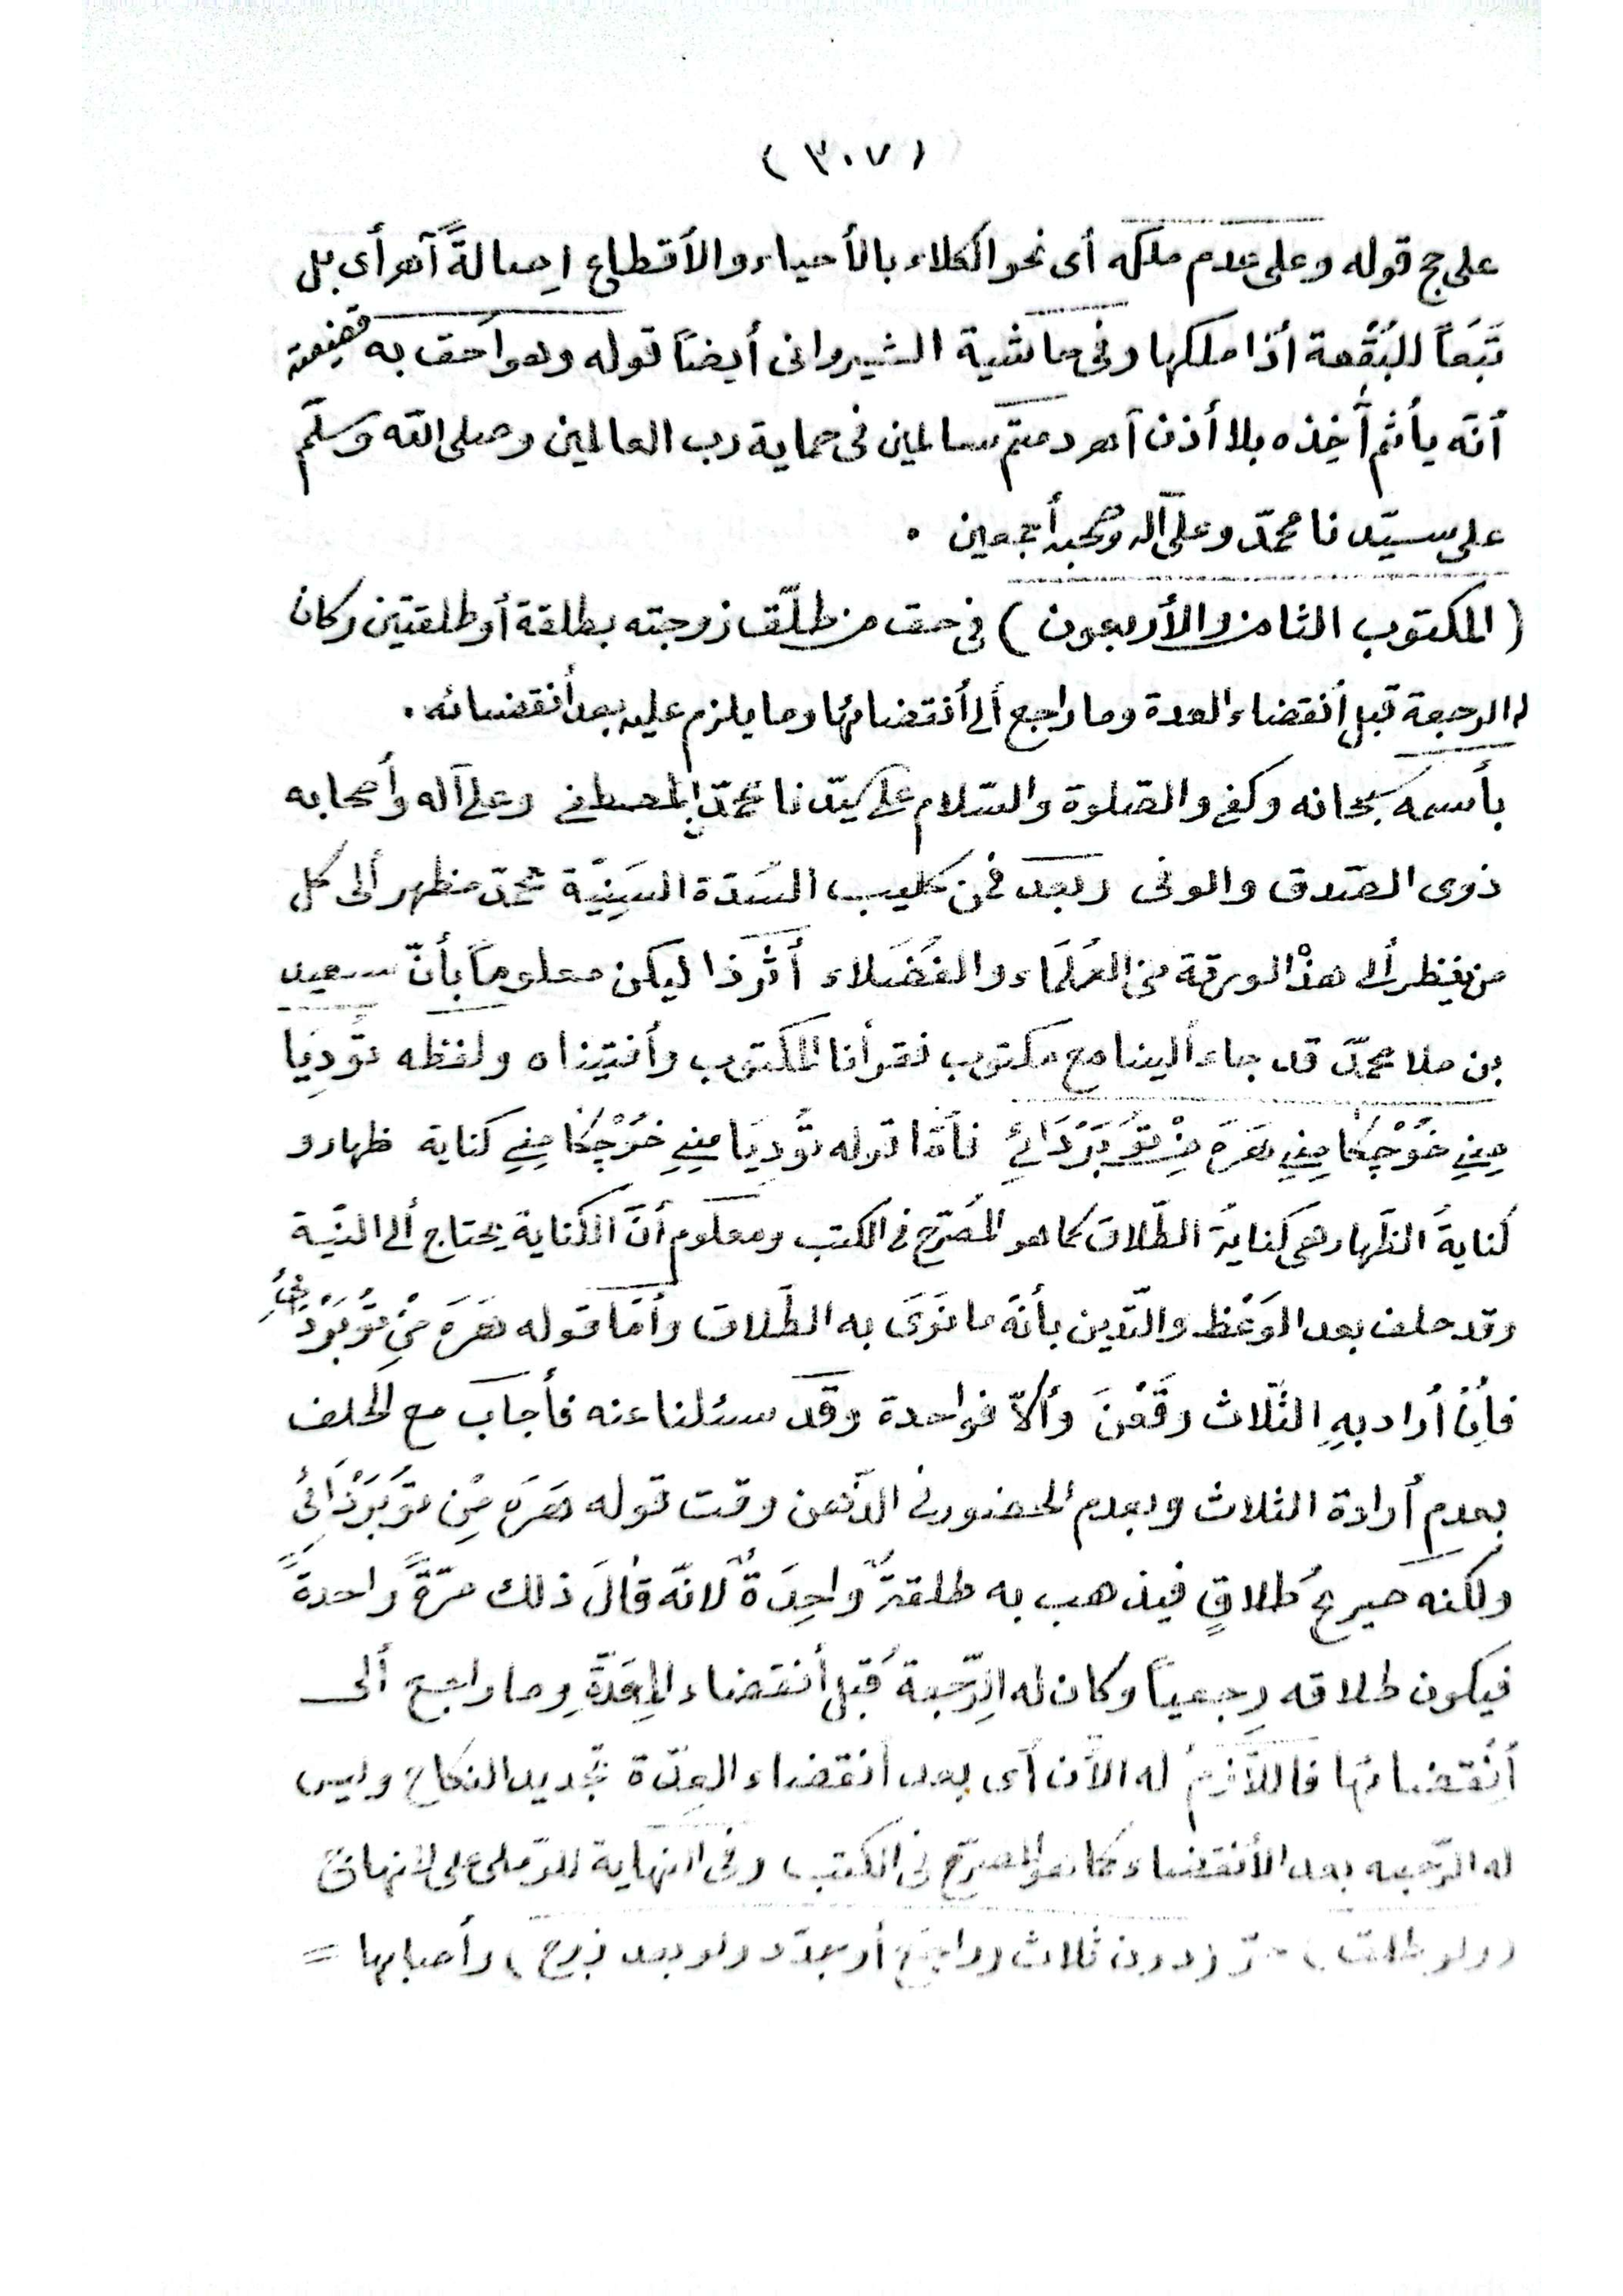 (٣٠٧)
على حج قوله وعلى عدم ملكه أى نحو الكلاء بالأحياء والأقطاع اِصالةً آهـ أى بل
تَبَعاً للبُقْعة أذا ملكها وفى حاشية الشيروانى أيضاً قوله وهو أحق به قضيته
أنّه يأثم أخِذه بلا أذن آهـ دمتم سالمين فى حماية رب العالمين وصلى الله وسلّم
على سيّدنا محمّد وعلى آله وصحبه أجمعين .
(المكتوب الثامن والأربعون) فى حق من طلّق زوجته بطلقة أو طلقتين وكان
له الرجعة قبل أنقضاء العدة وما راجع ألى أنقضائها وما يلزم عليه بعد أنقضائه .
بأسمه سبحانه وكفى والصّلوة والسّلام على سيّدنا محمّد المصطفى وعلى آله وأصحابه
ذوى الصّدق والوفى وبعد فمن كليب السّدّة السَنِيّة محمّد مظهر ألى كل
من ينظر ألى هذه الورقة من العُلَمَاء والفُضَلاء أثر ذا ليكن معلوماً بأنّ سعيد
بن ملا محمّد قد جاء ألينا مع مكتوب فقرأنا المكتوب وأفتيناه ولفظه تُودِيَا
مِنِي خُوْچِكَا مِنِي هَرَهَ مِنْ تُو بَرْدَائِ فأمّا قوله تُودِيَا مِنِي خُوْچِكَا مِنِي كناية ظهار و
كنايةُ الظّهار هى كنايةُ الطّلاق كما هو المُصَرّح فى الكتب ومعلوم أنّ الكناية يحتاج ألى النيّة
وقد حلف بعد الوَعْظ والتّدين بأنّه ما نَوَى به الطّلاق وأمّا قوله هَرَهَ مِنْ تُو بَرْدَائِ
فأِنْ أراد بِهِ الثّلاث وَقَعْنَ وألّا فواحدة وقد سئلنا عنه فأجاب مع الحلف
بعدم أرادة الثلاث وبعدم الحضور فى الذّهن وقت قوله هَرَهَ مِنْ تُو بَرْدَائِ
ولكنه صريحُ طلاقٍ فيذهب به طلقةٌ واحِدَةٌ لانّه قالَ ذلك مرّةً واحدةً
فيكون طلاقه رجعياً وكان له الرّجعة قبل أنقضاء العِدّةِ وما راجع ألى
أنقضائها فاللّازمُ له الآن أى بعد أنقضاء العِدّة تجديد النكاح وليس
له الرّجعه بعد الأنقضاء كما هو المصرّح فى الكتب وفى النّهاية للرّملى على المنهاج
(ولو طلق) حرّ (دون ثلاث وراجع أو جدّد ولو بعد زوج) وأصابها =